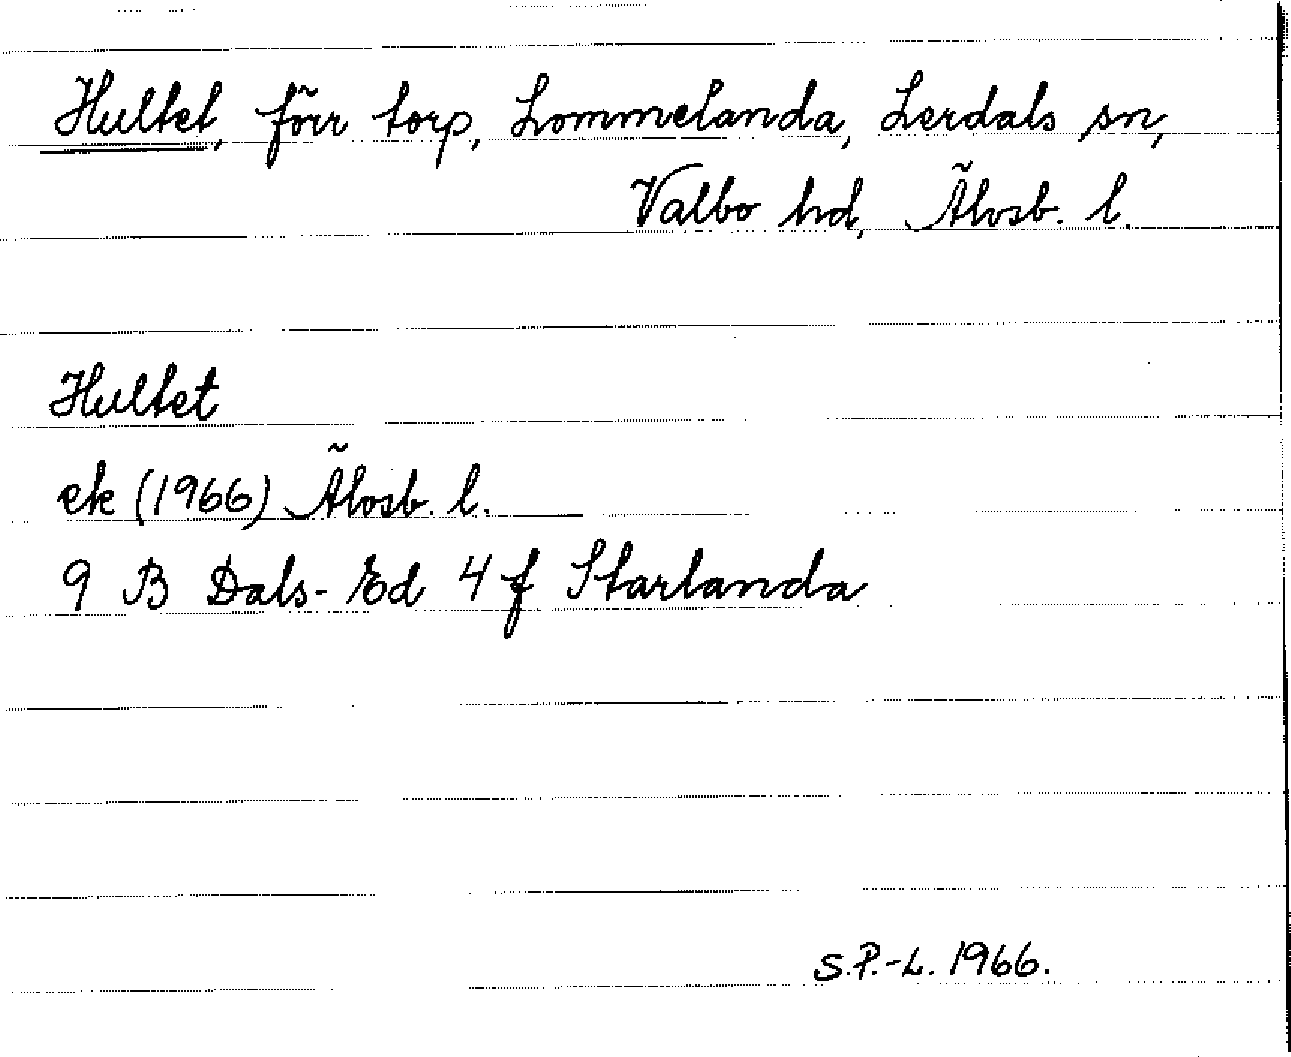 Hultet, förr torp, Lommelanda, Lerdals sn,
Valbo hd, Älvsb. l.
Hultet
ek (1966) Älvsb. l.
9 B Dals-Ed 4 f Starlanda
S.P.-L. 1966.